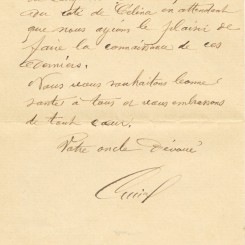 du côté de Célina en attendant
que nous ayions le plaisir de
faire la connaissance de ces
derniers.
Nous vous souhaitons bonne
santé à tous et vous embrassons
de tout cœur.
Votre oncle dévoué